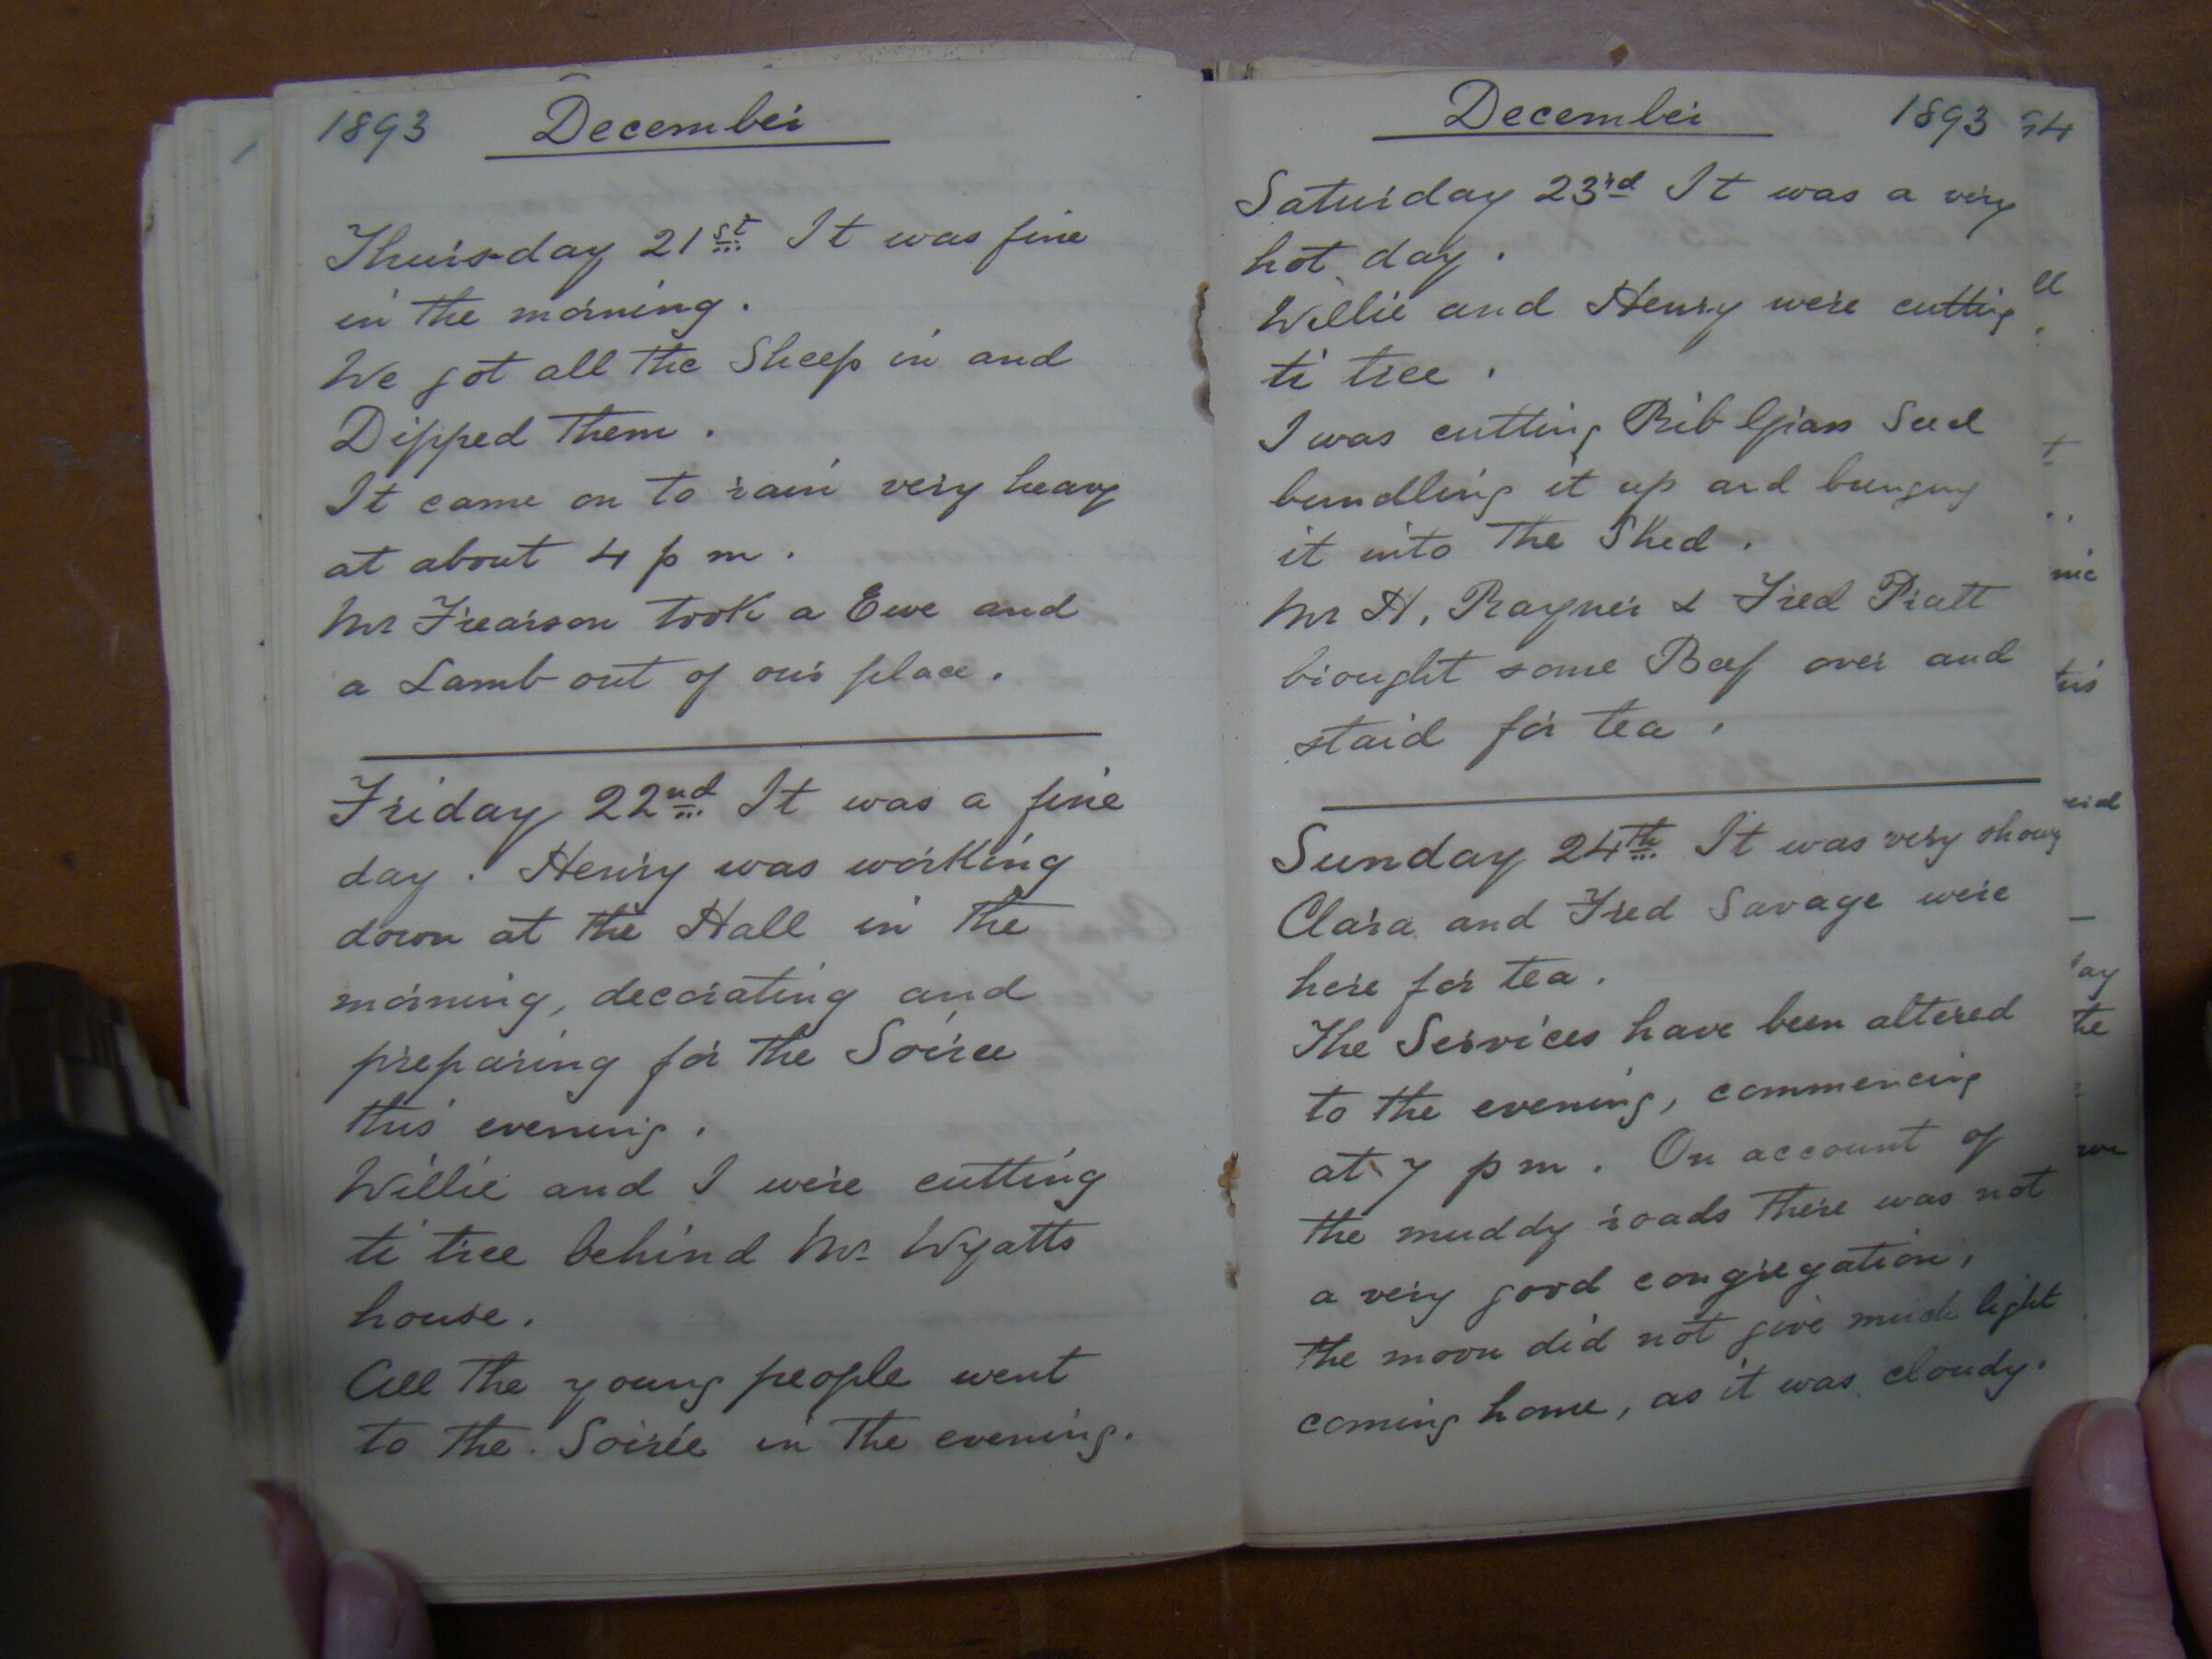 1893 December
Thursday 21st It was fine
in the morning.
We got all the Sheep in and
Dipped them.
It came on to rain very heavy
at about 4 p m.
Mr Frearson took a Ewe and
a Lamb out of our place.
Friday 22nd It was a fine
day. Henry was working
down at the Hall in the
morning, decorating and
preparing for the Soiree
this evening.
Willie and I were cutting
ti tree behind Mr Wyatts
house.
All the young people went
to the Soirée in the evening.
December 1893
Saturday 23rd It was a very
hot day.
Willie and Henry were cutting
ti tree.
I was cutting Rib Grass Seed
bundling it up and
it into the Shed.
Mr H. Rayner & Fred Pratt
brought some Beef over and
staid for tea.
Sunday 24th It was very
Clara and Fred Savage were
here for tea.
The Services have been altered
to the evening, commencing
at 7 p m. On account of
the muddy roads there was not
a very good congregation,
the moon did not give much light
coming home, as it was cloudy.
94
ll
t
nic
ay
the